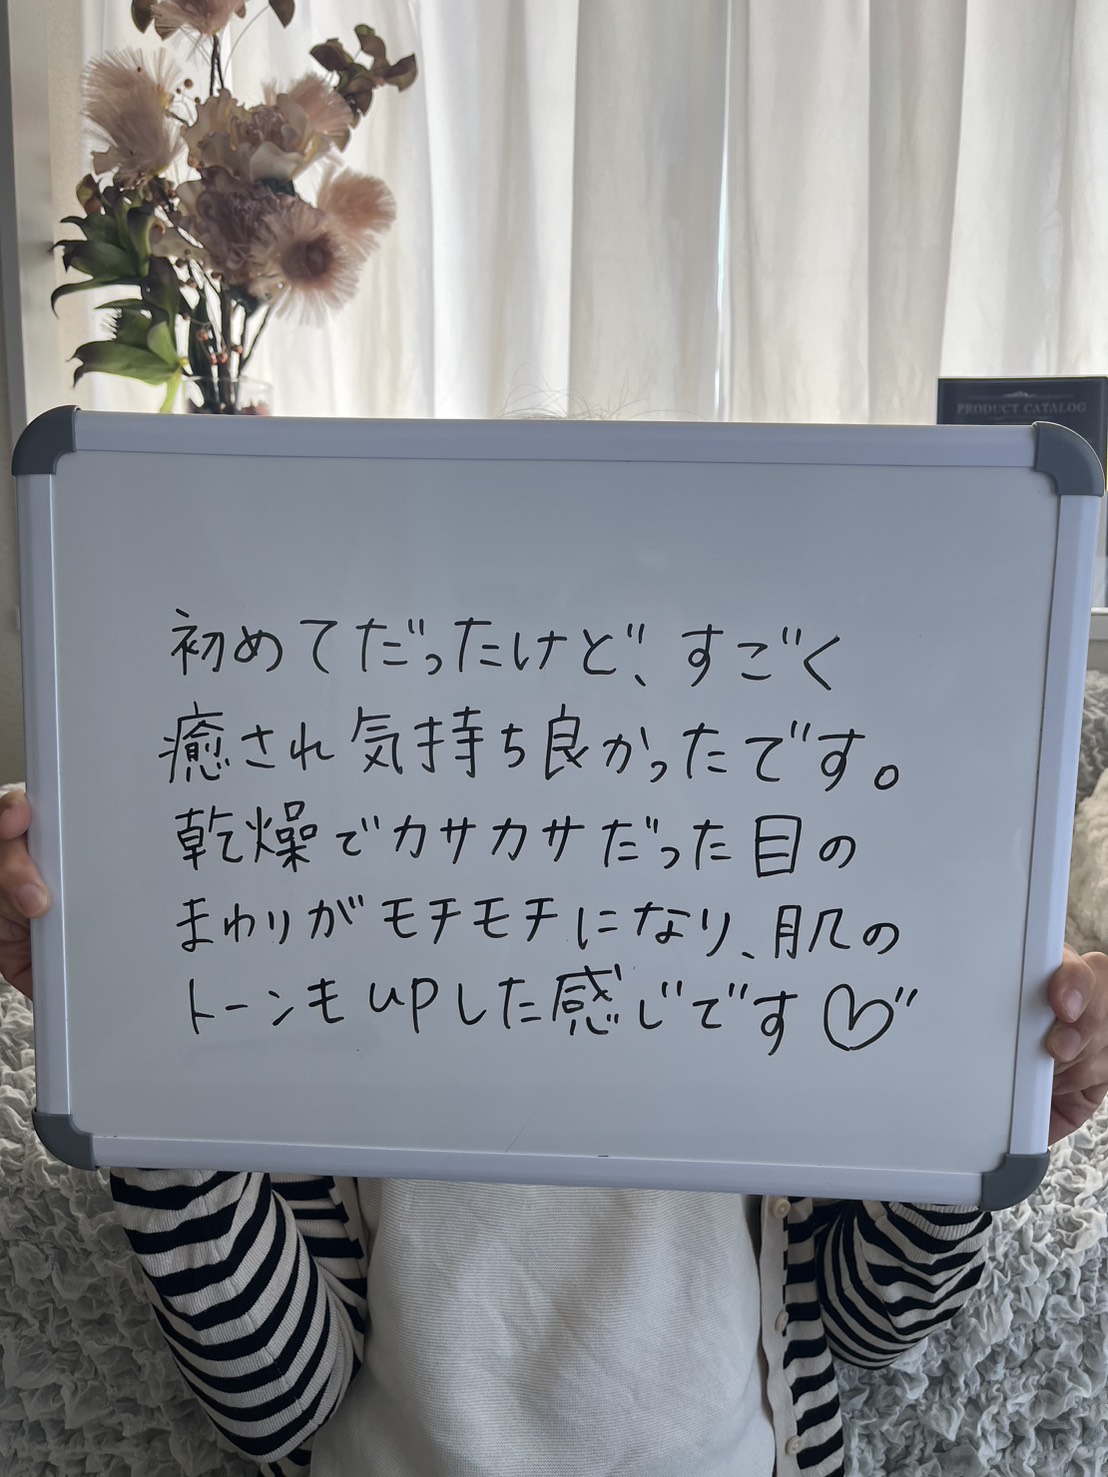 PRODUCT CATALOG
初めてだったけど、すごく
癒され気持ち良かったです。
乾燥でカサカサだった目の
まわりがモチモチになり、肌の
トーンもupした感じです♡"